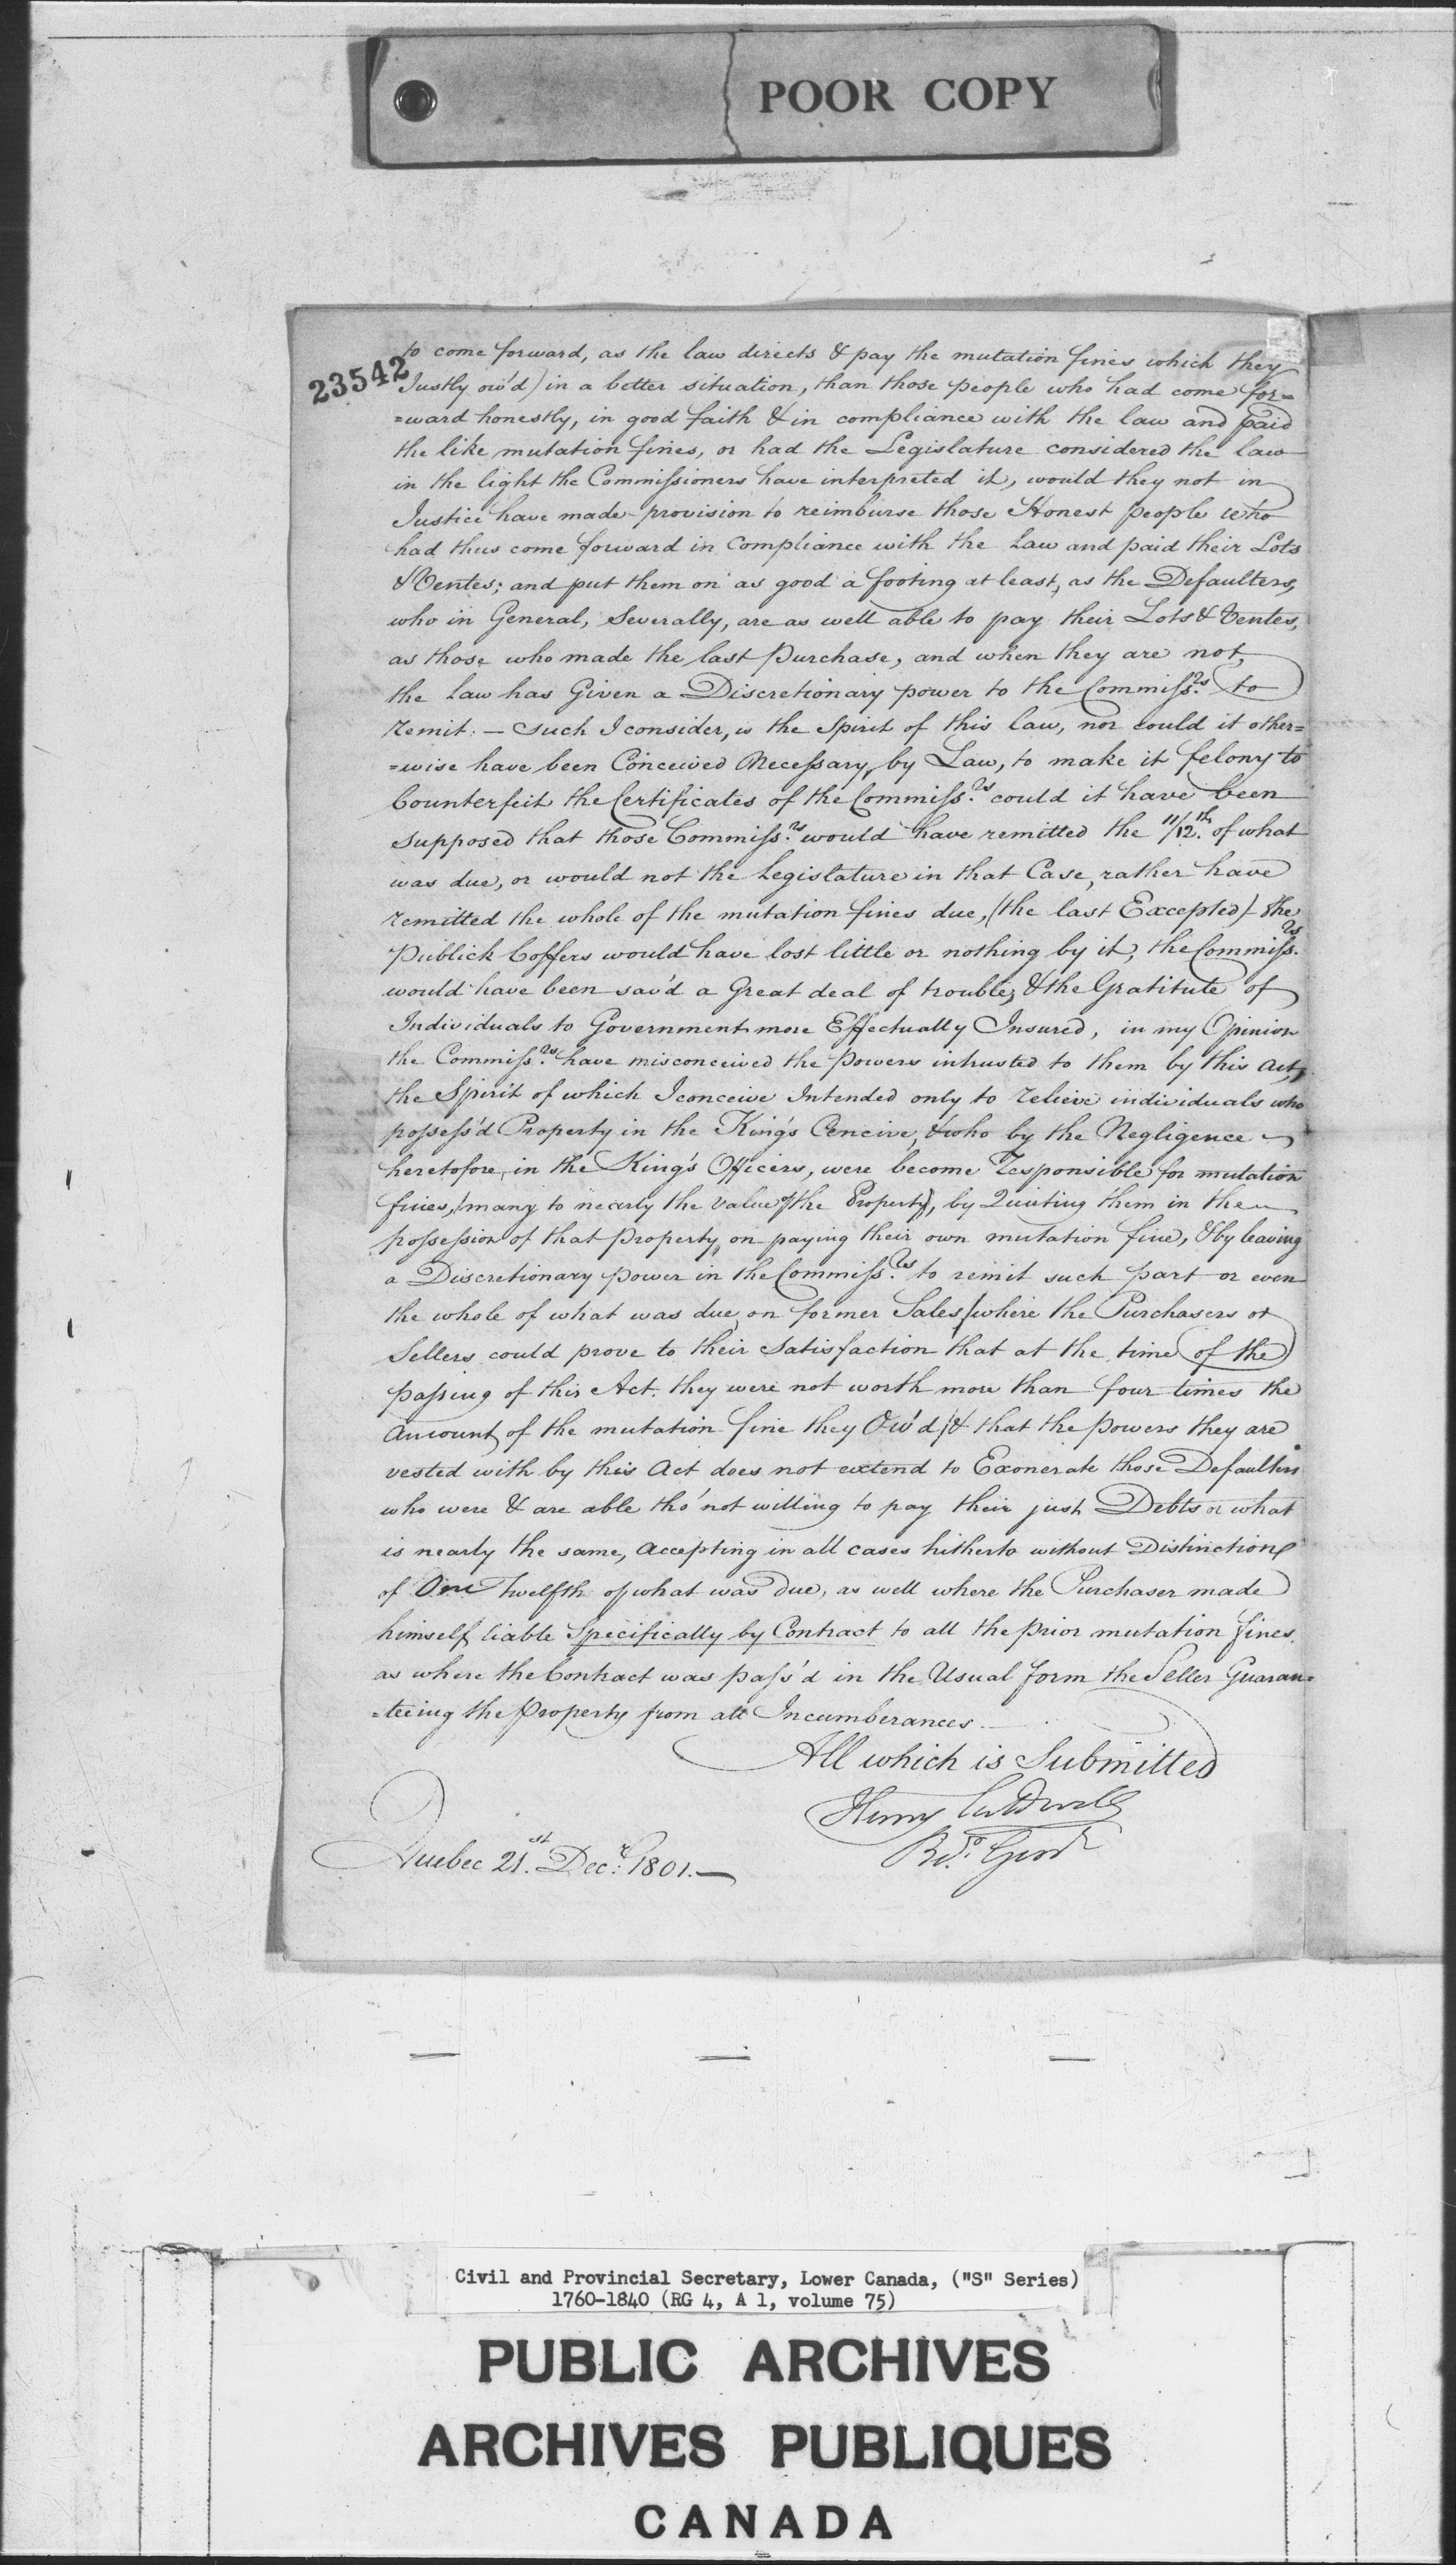 POOR COPY
23542
to come forward, as the law directs & pay the mutation fines which they
Justly ow'd) in a better situation, than those people who had come for=
=ward honestly, in good faith & in compliance with the law and paid
the like mutation fines, or had the Legislature considered the law
in the light the Commissioners have interpreted it, would they not in
Justice have made provision to reimburse those Honest people who
had thus come forward in Compliance with the Law and paid their Lots
& Ventes; and put them on as good a footing at least, as the Defaulters,
who in General, Severally, are as well able to pay their Lots & Ventes,
as those who made the last Purchase, and when they are not,
the Law has Given a Discretionary power to the Commiss.rs to
remit. — Such I consider, is the Spirit of this Law, nor could it other=
=wise have been Conceived Necessary, by Law, to make it felony to
Counterfeit the Certificates of the Commiss.rs could it have been
supposed that those Commiss.rs would have remitted the 11/12.th of what
was due, or would not the Legislature in that Case, rather have
remitted the whole of the mutation fines due, (the last Excepted) the
Publick Coffers would have lost little or nothing by it, the Commiss.rs
would have been sav'd a Great deal of trouble, & the Gratitute of
Individuals to Government more Effectually Insured, in my Opinion
the Commiss.rs have misconceived the Powers intrusted to them by this Act,
the Spirit of which I conceive Intended only to relieve individuals who
possess'd Property in the King's Cencive, & who by the Negligence
heretofore, in the King's Officers, were become responsible for mutation
fines, (many to nearly the value of the Property), by Quieting them in the
possession of that Property, on paying their own mutation fine, & by leaving
a Discretionary Power in the Commiss.rs to remit such part or even
the whole of what was due, on former Sales, (where the Purchasers or
Sellers could prove to their Satisfaction that at the time of the
passing of this Act. they were not worth more than four times the
Amount of the mutation fine they Ow'd) & that the powers they are
vested with by this Act does not extend to Exonerate those Defaulters
who were & are able tho' not willing to pay their just Debts or what
is nearly the same, Accepting in all cases hitherto without Distinction
of One Twelfth of what was Due, as well where the Purchaser made
himself liable Specifically by Contract to all the prior mutation fines,
as where the Contract was pass'd in the Usual form the Seller Guaran=
=teeing the Property from all Incumberances.
All which is Submitted
Henry Caldwell
Quebec 21.st Dec.r 1801. —
Civil and Provincial Secretary, Lower Canada, ("S" Series)
1760-1840 (RG 4, A 1, volume 75)
PUBLIC ARCHIVES
ARCHIVES PUBLIQUES
CANADA